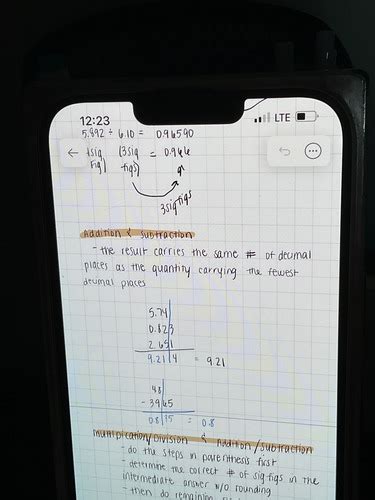 12:23
LTE
5.892 ÷ 6.10 = 0.96590
4sig (3sig = 0.966
fig) figs)
3sigfigs
Addition & Subtraction
- the result carries the same # of decimal
places as the quantity carrying the fewest
decimal places
5.74
0.823
2.651
9.214 = 9.21
4.8
- 3.965
0.8 = 0.8
Multiplication/Division & Addition/Subtraction
- do the steps in parenthesis first
- determine the correct # of sigfigs in the
intermediate answer w/o rounding
- then do remaining